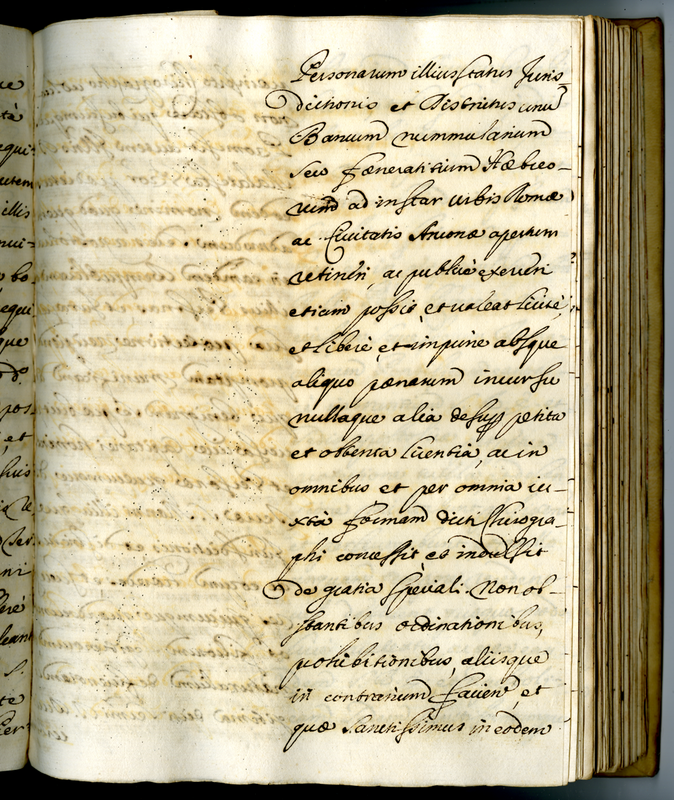 Personarum illius status Juris-
dictionis et districtus unu
Bancum nummularium
seu fæneratitium Hæbreo-
rum ad instar urbis Romæ
ac Civitatis Anconæ apertum
retineri, ac publicè exerceri
etiam possis et valeat licitè,
et liberè et impune absque
aliquo pænarum incursu
nullaque alia desup petita
et obtenta licentia, ac in
omnibus et per omnia iu-
xtà formam dicti Chirogra-
phi concessit et indulsit
de gratia speciali. Non ob-
stantibus ordinationibus,
prohibitionibus, aliisque
in contrarium facien et
quæ Sanctissimus in eodem